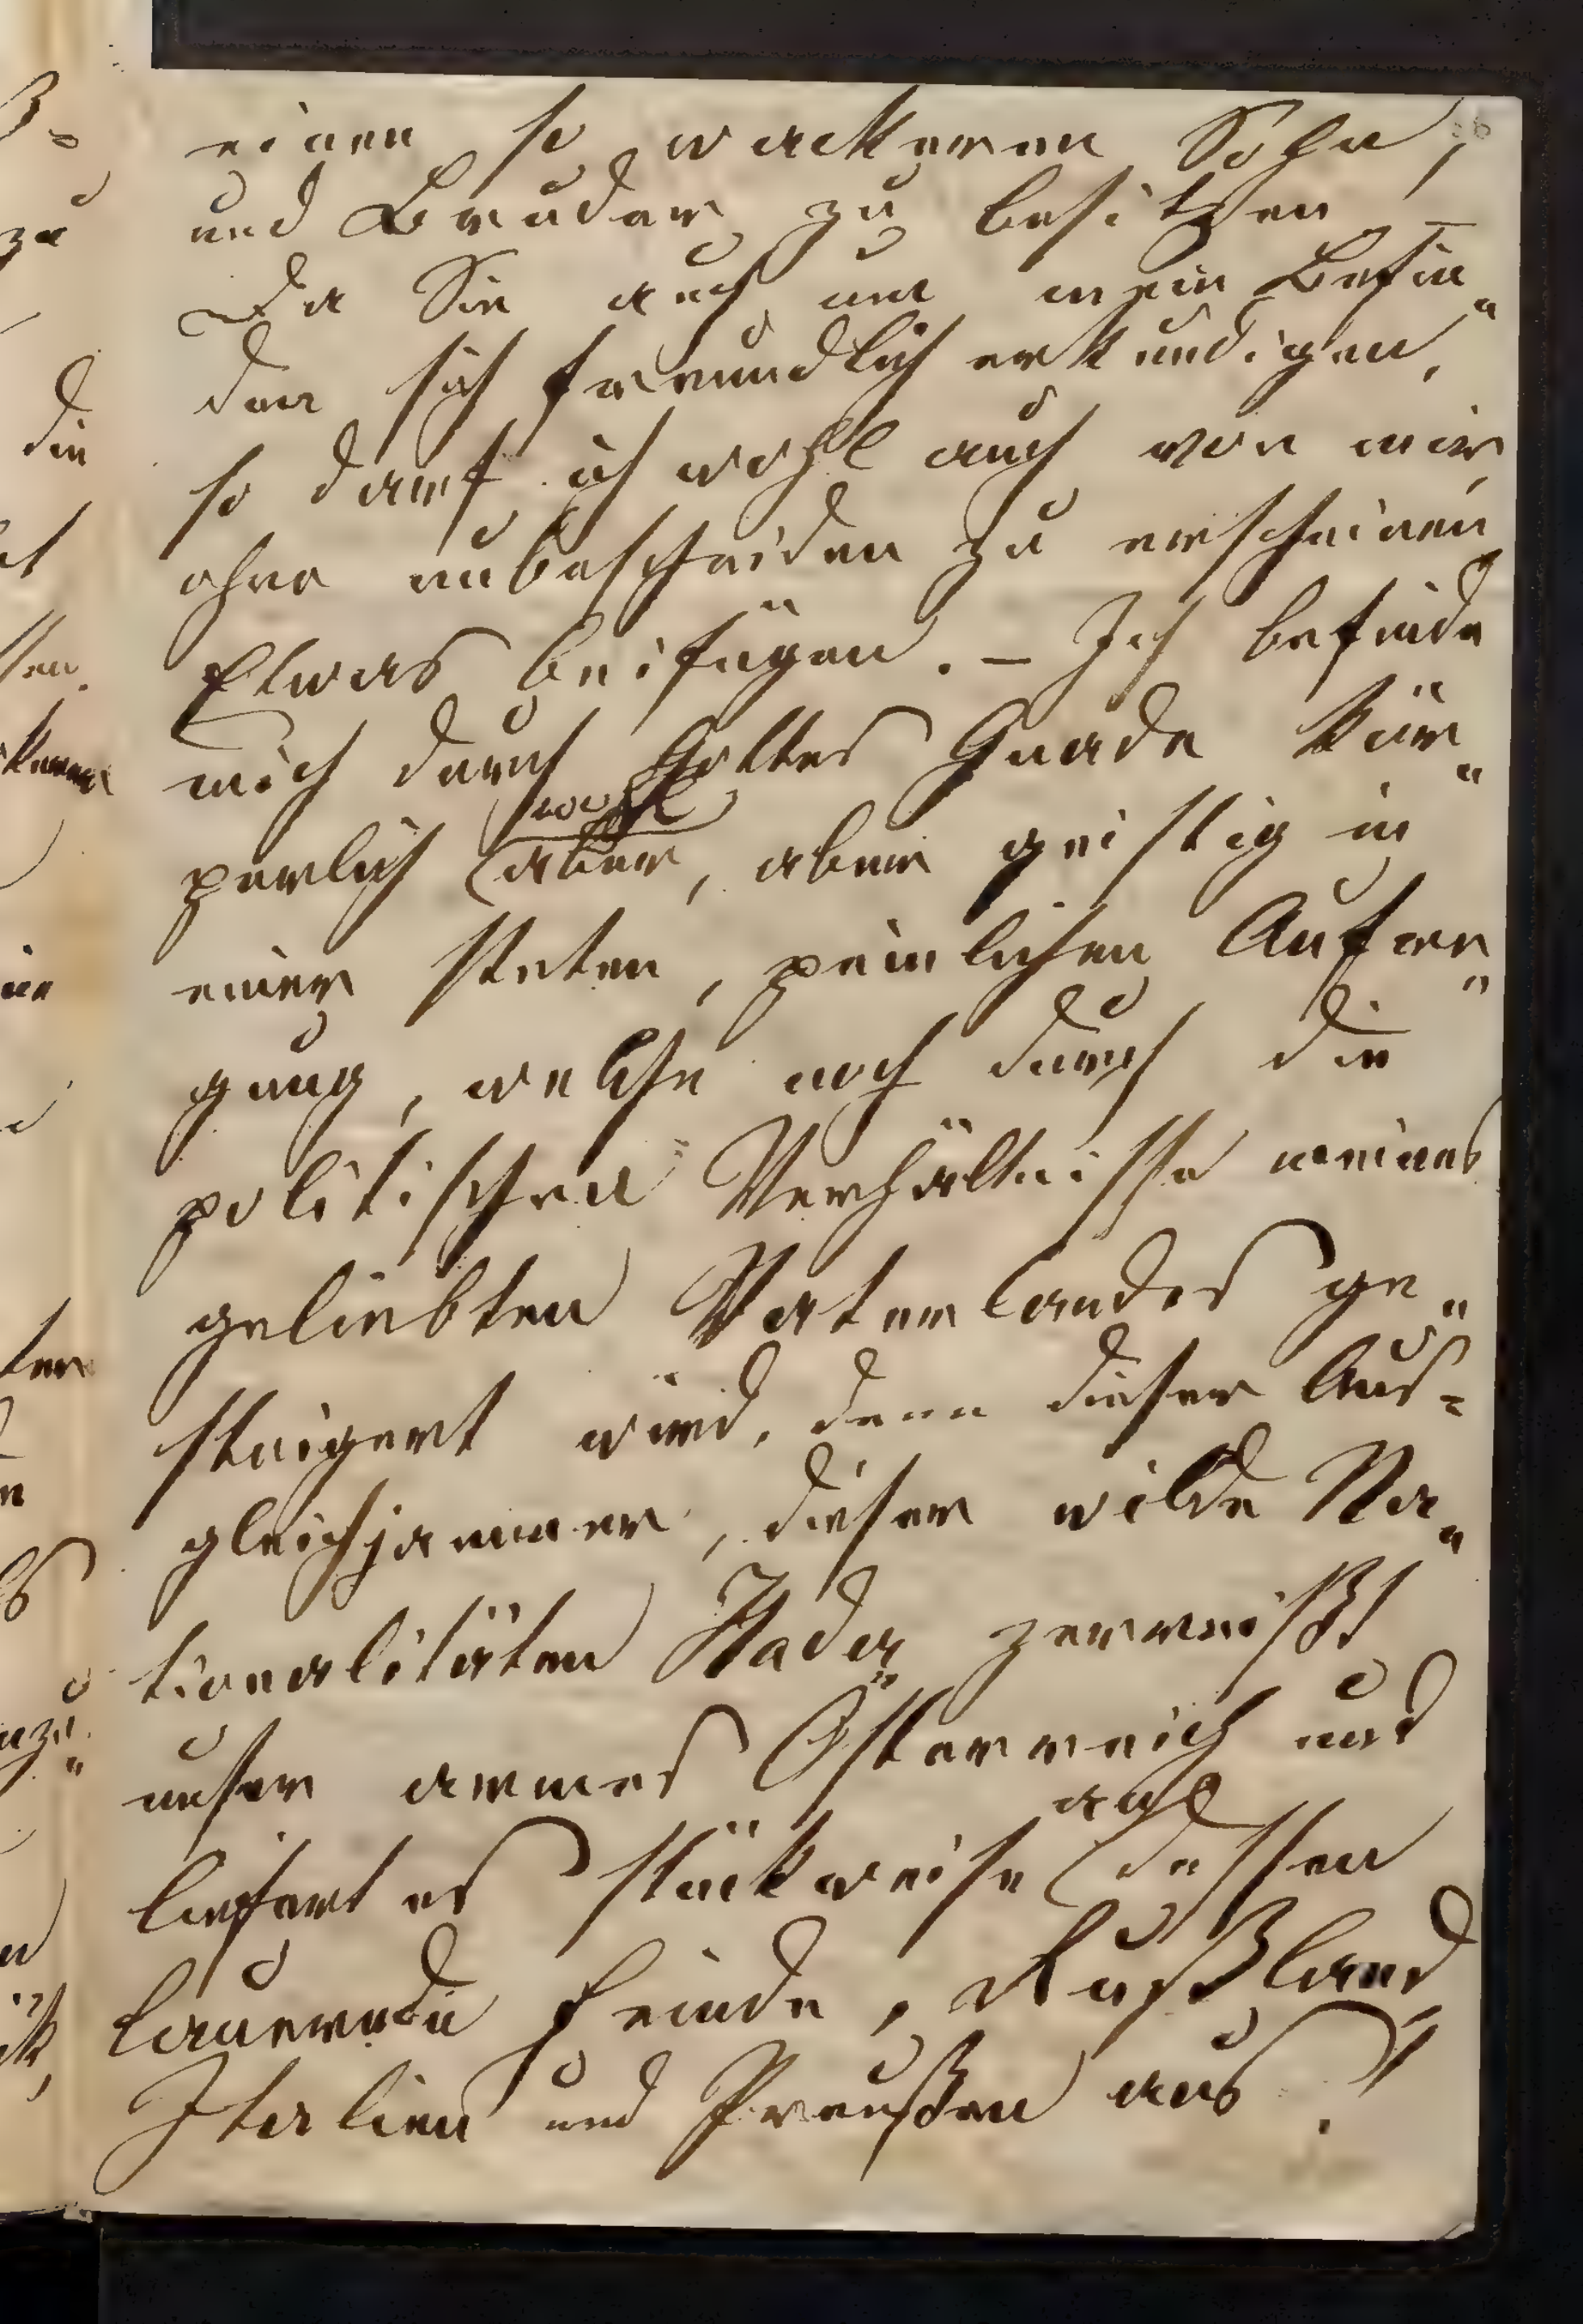 einen so wackeren Sohn,
und Bruder zu besitzen –
Da Sie auch um mein Befin„
den sich freundlich erkundigen,
so darf ich wohl auch von mir,
ohne unbescheiden zu erscheinen,
Etwas beifügen. – Ich befinde
mich durch Gottes Gnade kör„
wohl
perlich (aber, aber geistig in
einer steten, peinlichen Aufre„
gung, welche noch durch die
politischen Verhältnisse meines
geliebten Vaterlandes ge„
steigert wird, denn dieser Aus=
gleichjammer, dieser wilde Na„
tionalitäten Hader zerreißt
unser armes Österreich und
an
liefert es stückweise (dessen
lauernde Feinde, Rußland,
Italien und Preußen aus!
zu
die
ter